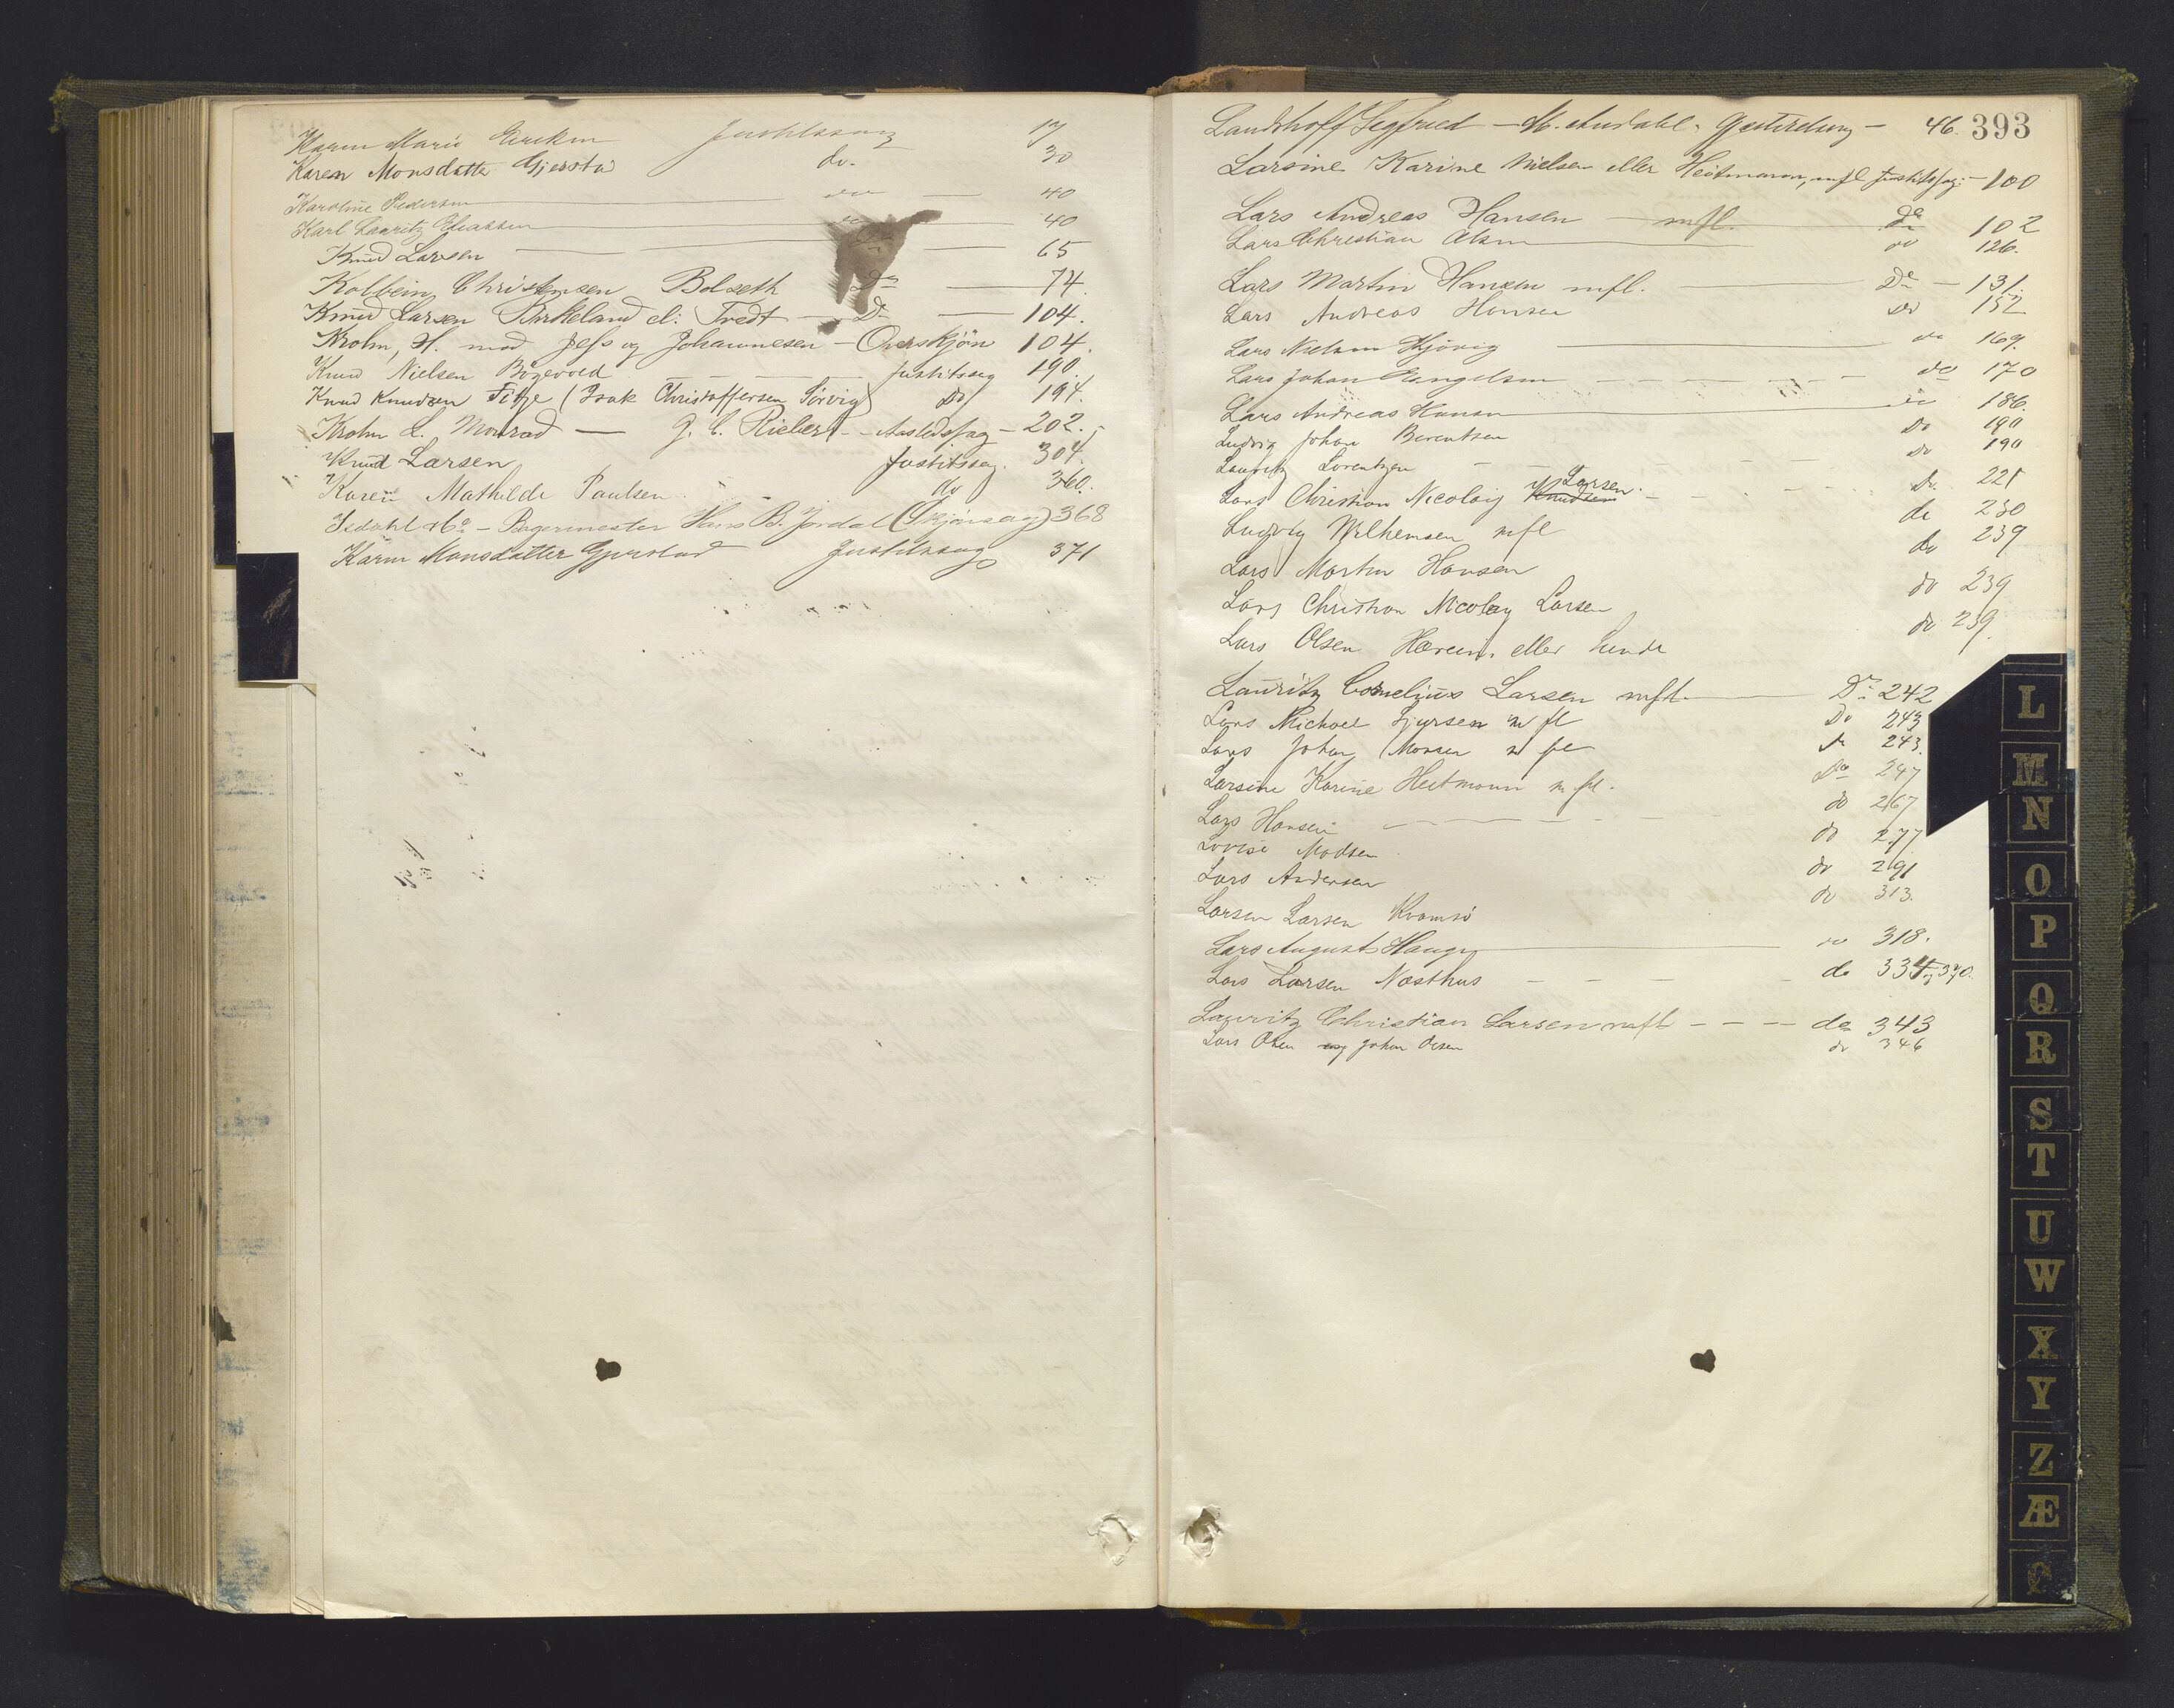 Karen Marie Ericksen Justitssag 17
Karen Monsdatter Gjerstad do. 30
Karoline Pedersen do 40
Karl Lauritz Eliassen do 40
Knud Larsen 65
Kolbein Christensen Bolseth Do 74
Knud Larsen Birkeland el: Tredt Do 104.
Krohn, H. mod Jess og Johannesen - Overskjøn 104.
Knud Nielsen Bøgevold Justitssag 190.
Knud Knudsen Fitje (Isak Christoffersen Sørvig) Do 194.
Krohn L. Monrad — G. C. Rieber - Aastedssag - 202.
Knud Larsen Justitssag. 304.
Karen Mathilde Paulsen do 360.
Isdahl & Co - Bagermester Hans B. Jordal (Skjønsag) 368
Karen Monsdatter Gjerstad Justitssag 371
Landshoff Segfried - M. Andahl - Gjesteretssag - 46. 393
Larsine Karine Nielsen eller Heitmann, mfl Justitssag: - 100
Lars Andreas Hansen mfl. do 102
Lars Christian Olsen do 126.
Lars Martin Hansen mfl. Do - 131.
Lars Andreas Hansen do 152
Lars Nielsen do 169.
Lars Johan Engelsen do 170
Lars Andreas Hansen do 186.
Ludvig Johan Berentsen Do 190
Lauritz Lorentzen do 190
Lars Christian Nicolay Knudsen Larsen. do. 221
Ludvig Wilhemsen mfl do 230
Lars Martin Hansen do 239
Lars Christian Nicolay Larsen do 239
Lars Olsen eller Lunde do 239.
Lauritz Cornelius Larsen mfl. Do 242
Lars Michael Sjursen m fl Do 243
Lars Johan Monsen m fl do 243.
Larsine Karine Heitmann m fl. Do 247
Lars Hansen do 267
Lovise Madsen do 277
Lars Andersen do 291
Larsen Larsen Kvamsø do 313.
Lars August Hauge do 318.
Lars Larsen Næsthus do 334, 370.
Lauritz Christian Larsen mfl - - - do 343
Lars Olsen og Johan Olsen do 346
L
M
N
O
P
Q
R
S
T
U
W
X
Y
Z
Æ
Ø